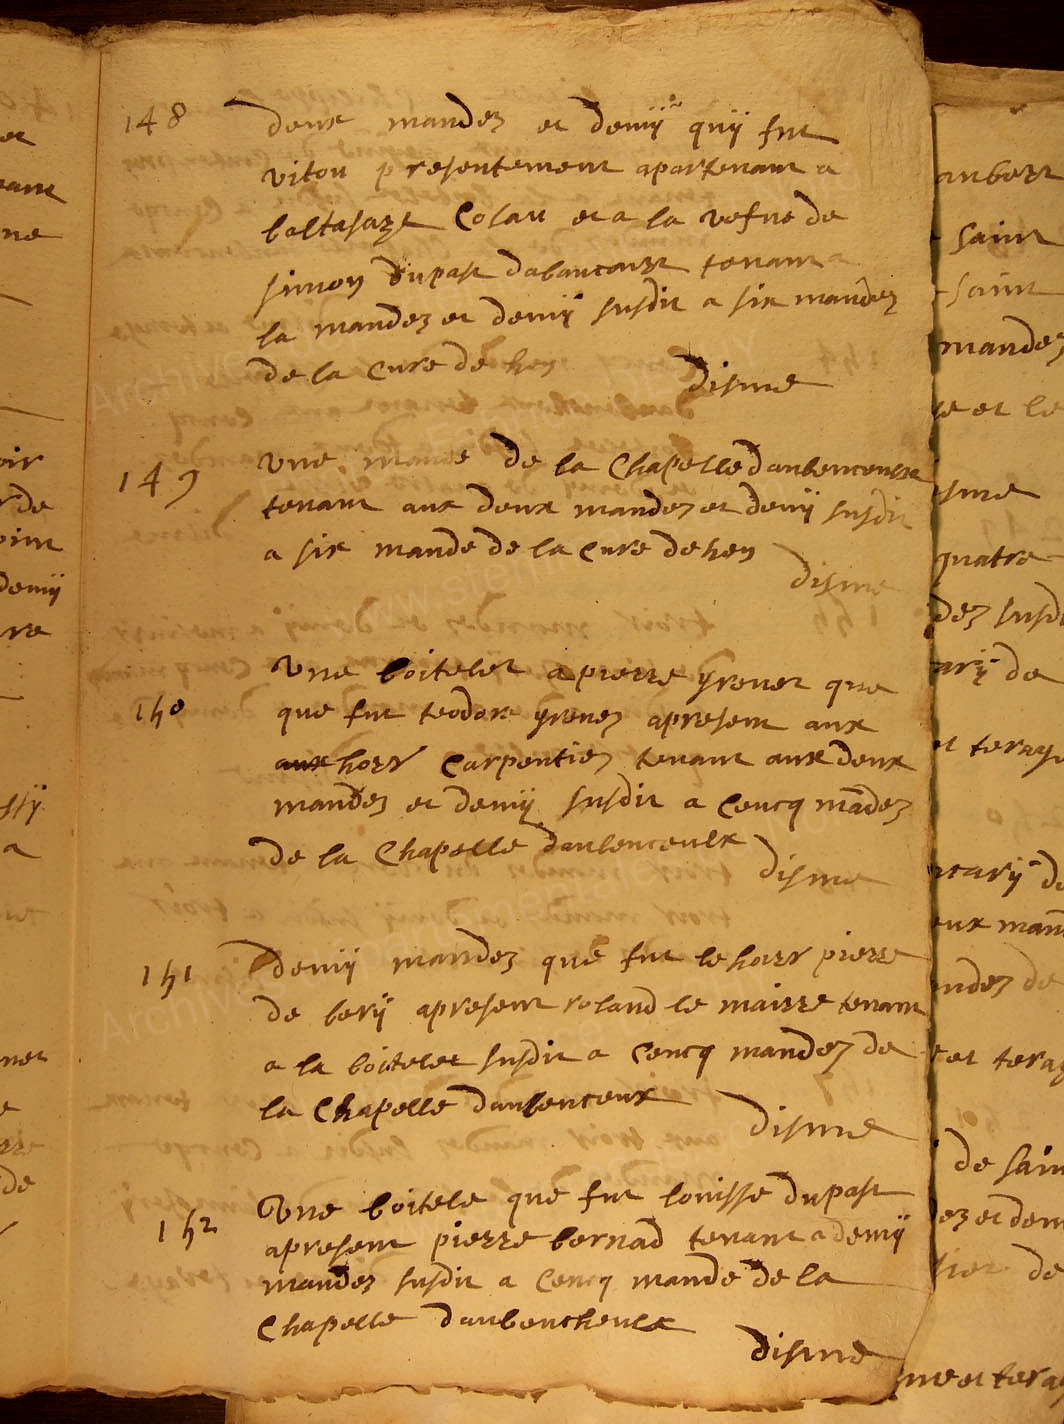 148
deux mandez et demÿ quÿ fut
vitou presentement apartenant a
baltasare Colau et a la vefue de
simon dupast dabancourt tenant a
la mandez et demÿ susdit a six mandez
de la Cure de hem
disme
149
une mande de la Chapelle daubenceulx
tenant aux deux mandez et demÿ susdit
a six mande de la Cure de hem
disme
150
une boitelet a pierre grenet que
que fut teodore grenez apresent aux
aux hoirs Carpentiez tenant aux deux
mandez et demÿ susdit a Cencq mãdez
de la Chapelle daubenceulx
disme
151
demÿ mandez que fut le hoirs pierre
de berÿ apresent roland le mairre tenant
a la boitelet susdit a Cencq mandez de
la Chapelle daubenceux
disme
152
Une boitele que fut louisse dupast
apresent pierre bernad tenant a demÿ
mandez susdit a Cencq mande de la
Chapelle daubencheulx
disme
aubert
saint
saint
mandez
et le
sme
quatre
dez susdi
de
et teray
eux man
ndez de
et teray
de sain
ez et dem
de
me et teray